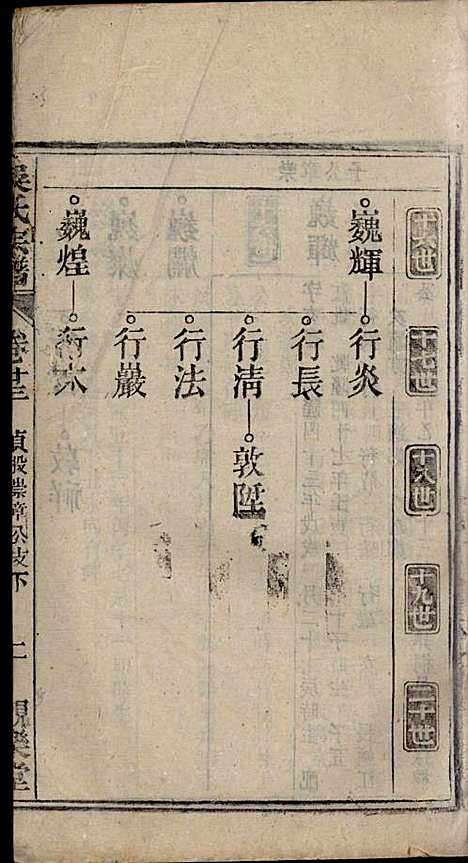 十六世
十七世
十八世
十九世
二十世
巍輝
行炎
行長
行清
敦陞
行法
行巖
巍煌
行木
氏宗譜
卷廿三
貞股崇璋公支下
二
親樂堂